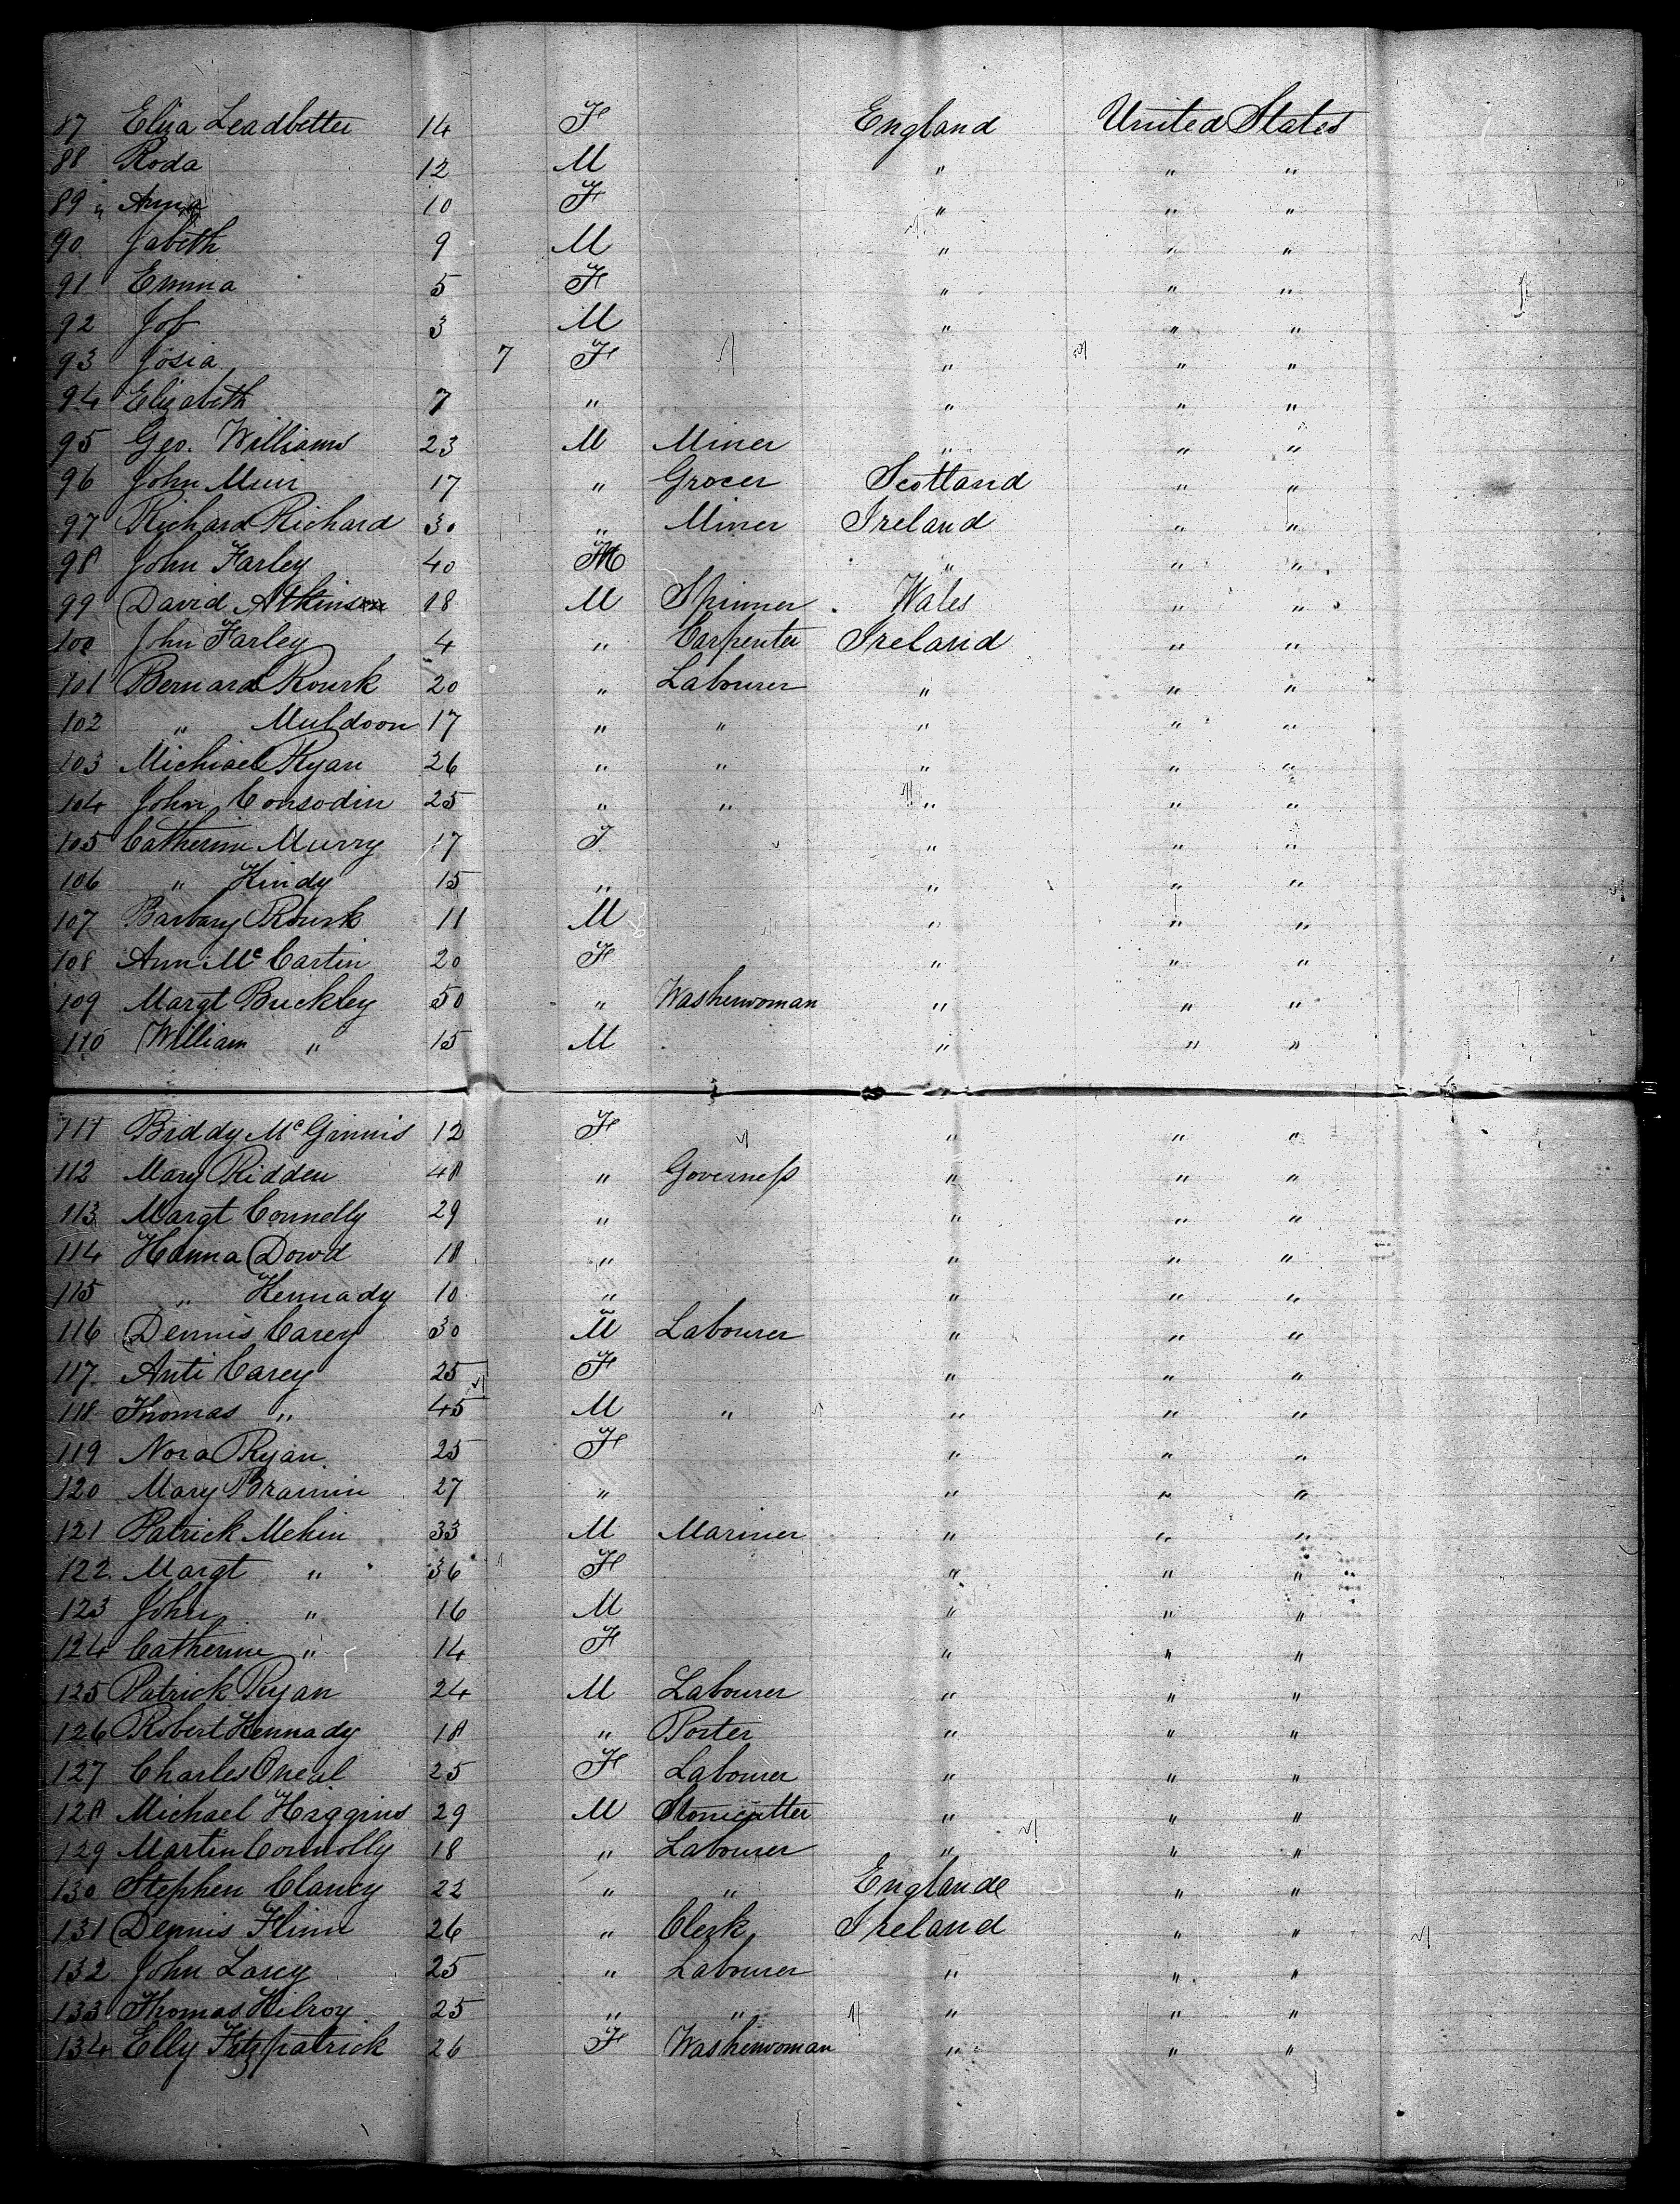 87 Eliza Leadbetter 14 F England United States
88 Roda 12 M " " "
89 " Anna 10 F " " "
90 Jabeth 9 M " " "
91 Emma 5 F " " "
92 Job 3 M " " "
93 Josia 7 F " " "
94 Elizabeth 7 " " " "
95 Geo. Williams 23 M Miner " " "
96 John Muir 17 " Grocer Scotland " "
97 Richard Richard 30 " Miner Ireland " "
98 John Farley 40 M " " "
99 David Atkinson 18 M Spinner Wales " "
100 John Farley 4 " Carpenter Ireland " "
101 Bernard Rourk 20 " Labourer " " "
102 " Muldoon 17 " " " " "
103 Michiael Ryan 26 " " " " "
104 John Consodin 25 " " " " "
105 Catherine Murry 17 F " " "
106 " Hindy 15 " " " "
107 Barbary Rourk 11 M " " "
108 Ann Mc Cartin 20 F " " "
109 Margt Buckley 50 " Washerwoman " " "
110 William " 15 M " " "
111 Biddy Mc Ginnis 12 F " " "
112 Mary Ridden 48 " Governess " " "
113 Margt Connolly 29 " " " "
114 Hanna Dowd 18 " " " "
115 " Kennady 10 " " " "
116 Dennis Carey 30 M Labourer " " "
117 Anti Carey 25 F " " "
118 Thomas " 45 M " " " "
119 Nora Ryan 25 F " " "
120 Mary Brannin 27 " " " "
121 Patrick Mehin 33 M Mariner " " "
122 Margt " 36 F " " "
123 John " 16 M " " "
124 Catherine " 14 F " " "
125 Patrick Ryan 24 M Labourer " " "
126 Robert Kennady 18 " Porter " " "
127 Charles Oneal 25 F Labourer " " "
128 Michael Haggins 29 M Stonecutter " " "
129 Martin Connolly 18 " Labourer " " "
130 Stephen Clancy 22 " " England " "
131 Dennis Flinn 26 " Clerk Ireland " "
132 John Larcy 25 " Labourer " " "
133 Thomas Kilroy 25 " " " " "
134 Elly Fitzpatrick 26 F Washerwoman " " "